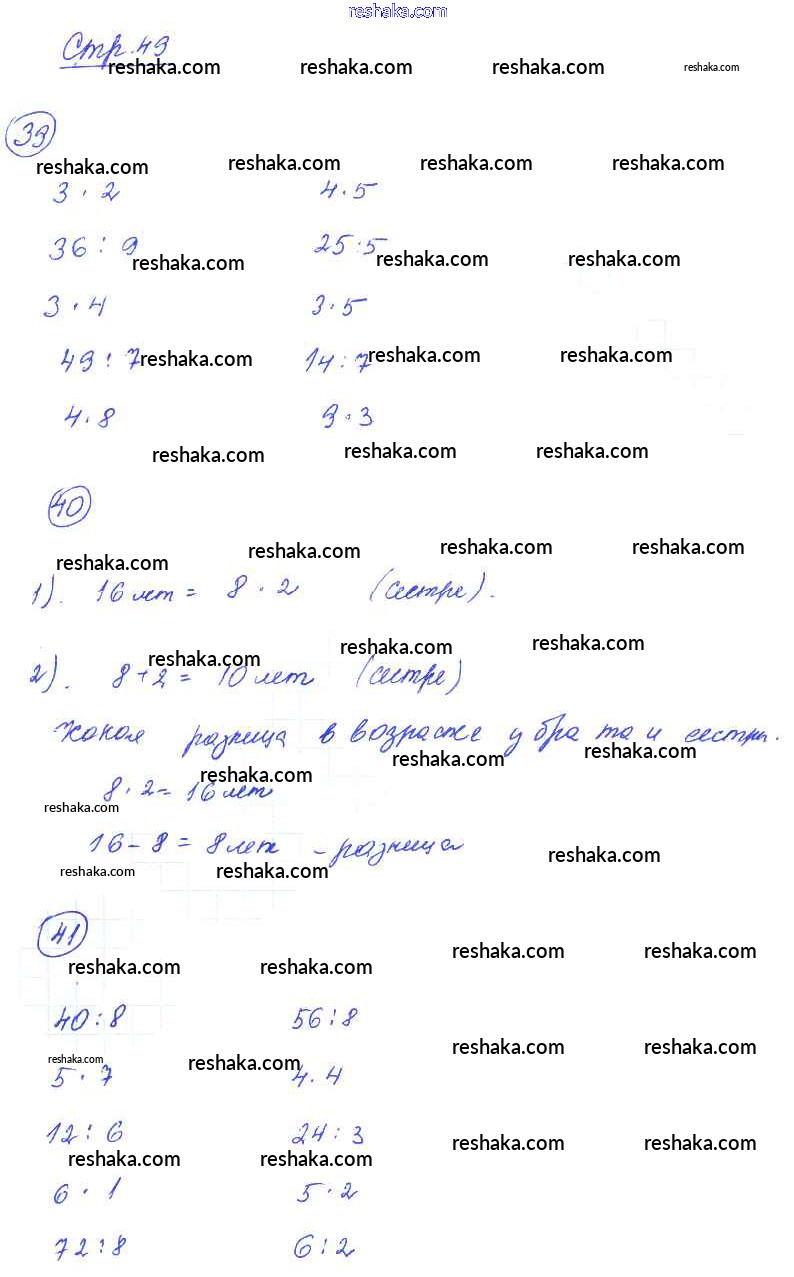 reshaka.com
Стр. 49
reshaka.com reshaka.com reshaka.com reshaka.com
39
reshaka.com reshaka.com reshaka.com reshaka.com
3 · 2 4 · 5
36 : 9 25 : 5
reshaka.com reshaka.com reshaka.com
3 · 4 3 · 5
49 : 7 reshaka.com 14 : 7 reshaka.com reshaka.com
4 · 8 9 · 3
reshaka.com reshaka.com reshaka.com
40
reshaka.com reshaka.com reshaka.com reshaka.com
1). 16 лет = 8 · 2 (сестре).
reshaka.com reshaka.com reshaka.com
2). 8 + 2 = 10 лет (сестре)
Какая разница в возрасте у брата и сестры.
reshaka.com reshaka.com reshaka.com
8 · 2 = 16 лет
reshaka.com
16 - 8 = 8 лет - разница
reshaka.com reshaka.com reshaka.com
41
reshaka.com reshaka.com reshaka.com reshaka.com
40 : 8 56 : 8
reshaka.com reshaka.com reshaka.com reshaka.com
5 · 7 4 · 4
12 : 6 24 : 3
reshaka.com reshaka.com reshaka.com reshaka.com
6 · 1 5 · 2
72 : 8 6 : 2